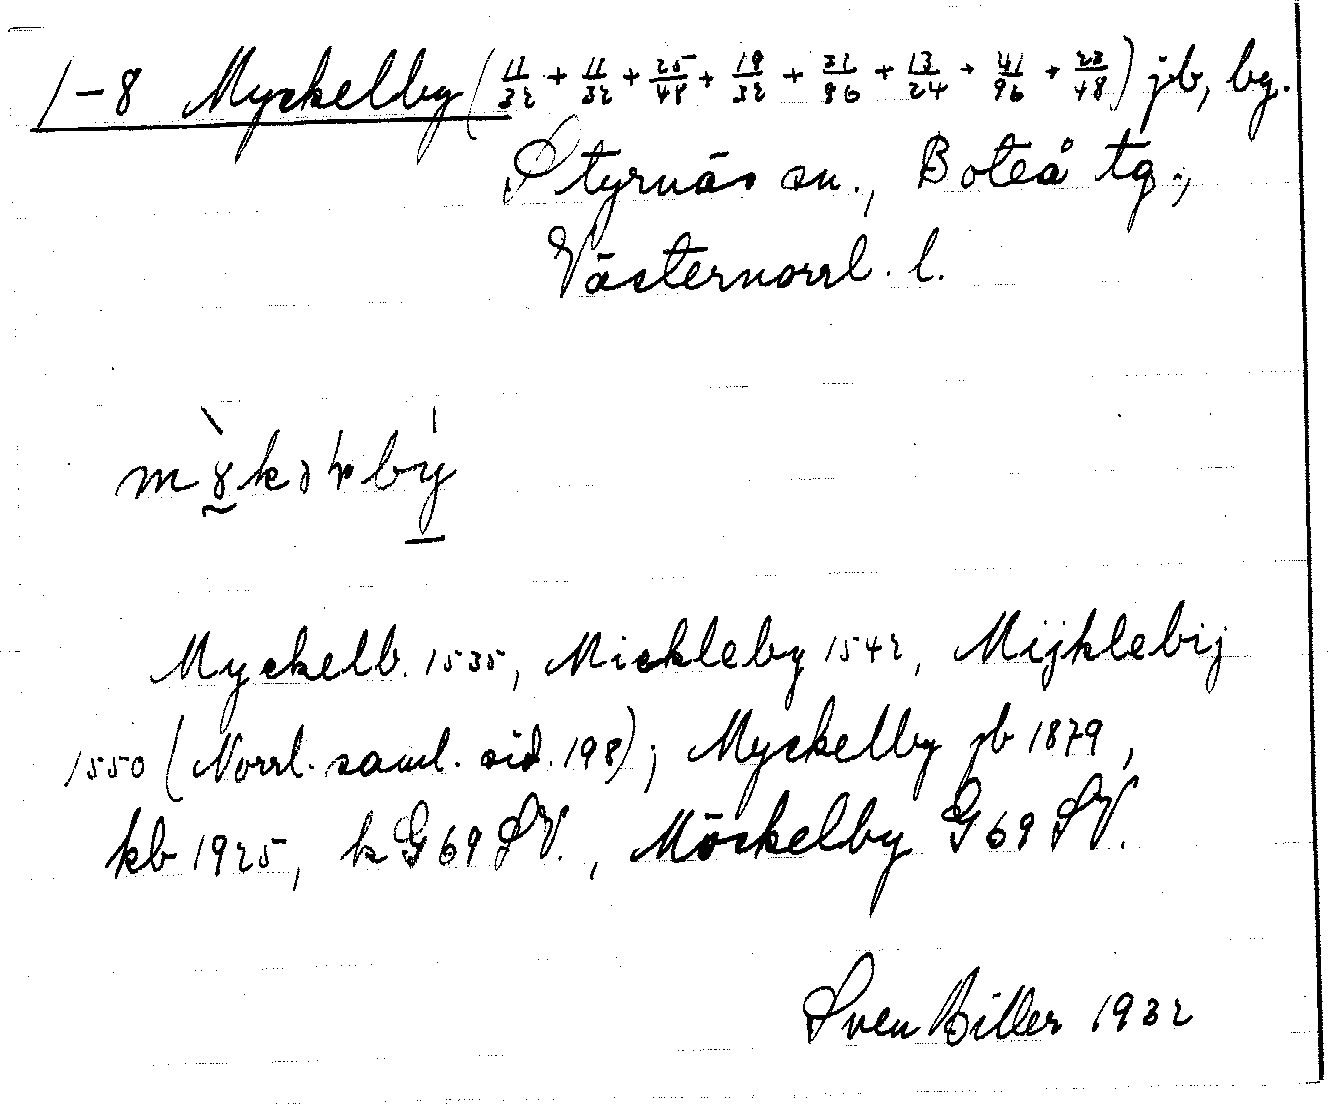 1-8 Myckelby (11/32 + 11/32 + 25/48 + 19/32 + 31/96 + 13/24 + 41/96 + 23/48) jb, by.
Styrnäs sn., Boteå tg.,
Västernorrl. l.
Myckelb. 1535, Mickleby 1542, Mijklebij
1550 (Norrl. saml. sid. 198); Myckelby jb 1879,
kb 1925, k G69SV., Möckelby G69SV.
Sven Biller 1932